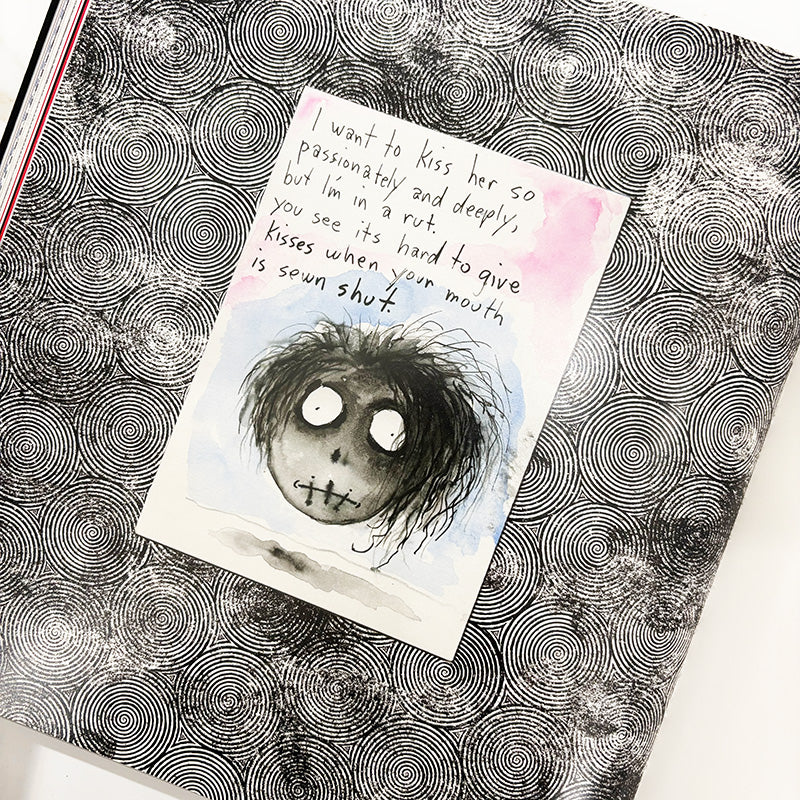 I want to kiss her so
passionately and deeply,
but I'm in a rut.
you see its hard to give
kisses when your mouth
is sewn shut.